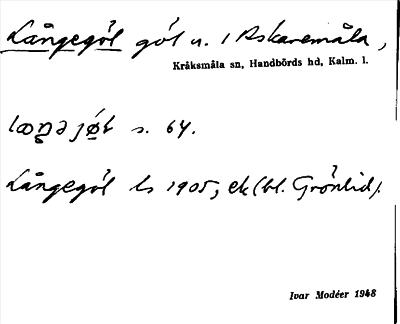 Långegöl göl u. 1 Askaremåla,
Kråksmåla sn, Handbörds hd, Kalm. l.
s. 64.
Långegöl ls 1905, ek (bl. Grönlid).
Ivar Modéer 1948